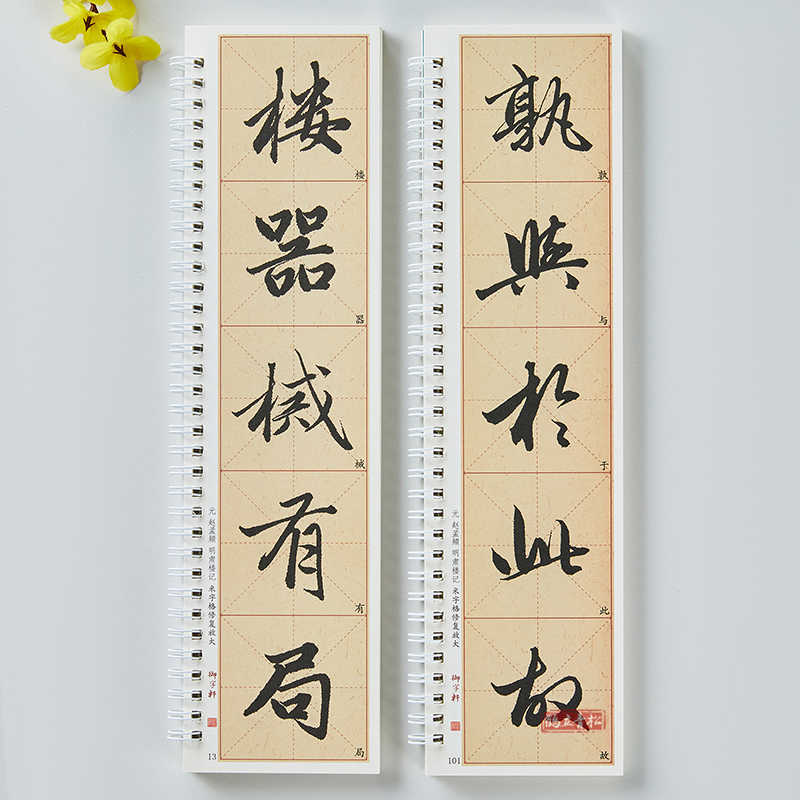 楼
楼
器
器
械
械
有
有
局
局
元 赵孟頫 明肃楼记 米字格修复放大
御字轩
13
孰
孰
與
与
於
于
此
此
故
故
元 赵孟頫 明肃楼记 米字格修复放大
御字轩
101
鶴立青松